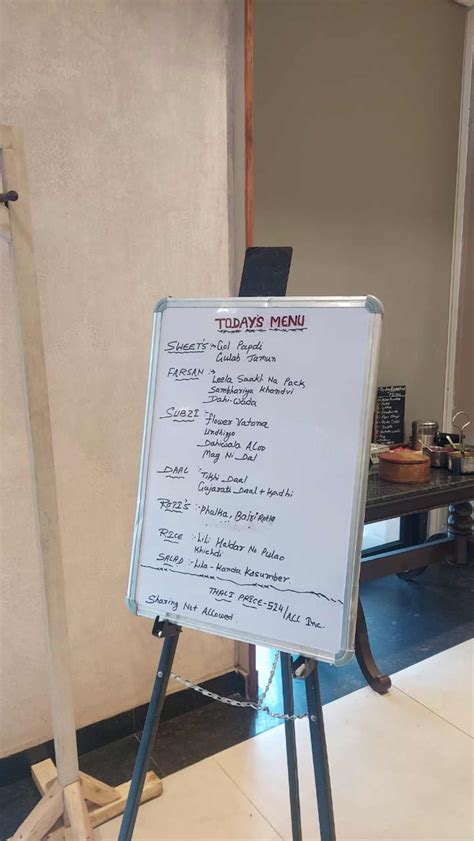 TODAY'S MENU
SWEET'S :- Gol Papdi
Gulab Jamun
FARSAN :- Leela Saakh Na Pack
Sambhariya Khandvi
Dahi-Wada
SUBZI :- Flower Vatona
Undhiyo
Dahiwala Aloo
Mag Ni Dal
DAAL :- Tikhi Daal
Gujarati Daal + Kadhi
ROTI'S :- Phulka, Bajri Rotla
RICE :- Lili Haldar No Pulao
Khichdi
SALAD :- Lila-Kanda Kasumber
THALI PRICE-524/ALL Inc.
Sharing Not Allowed